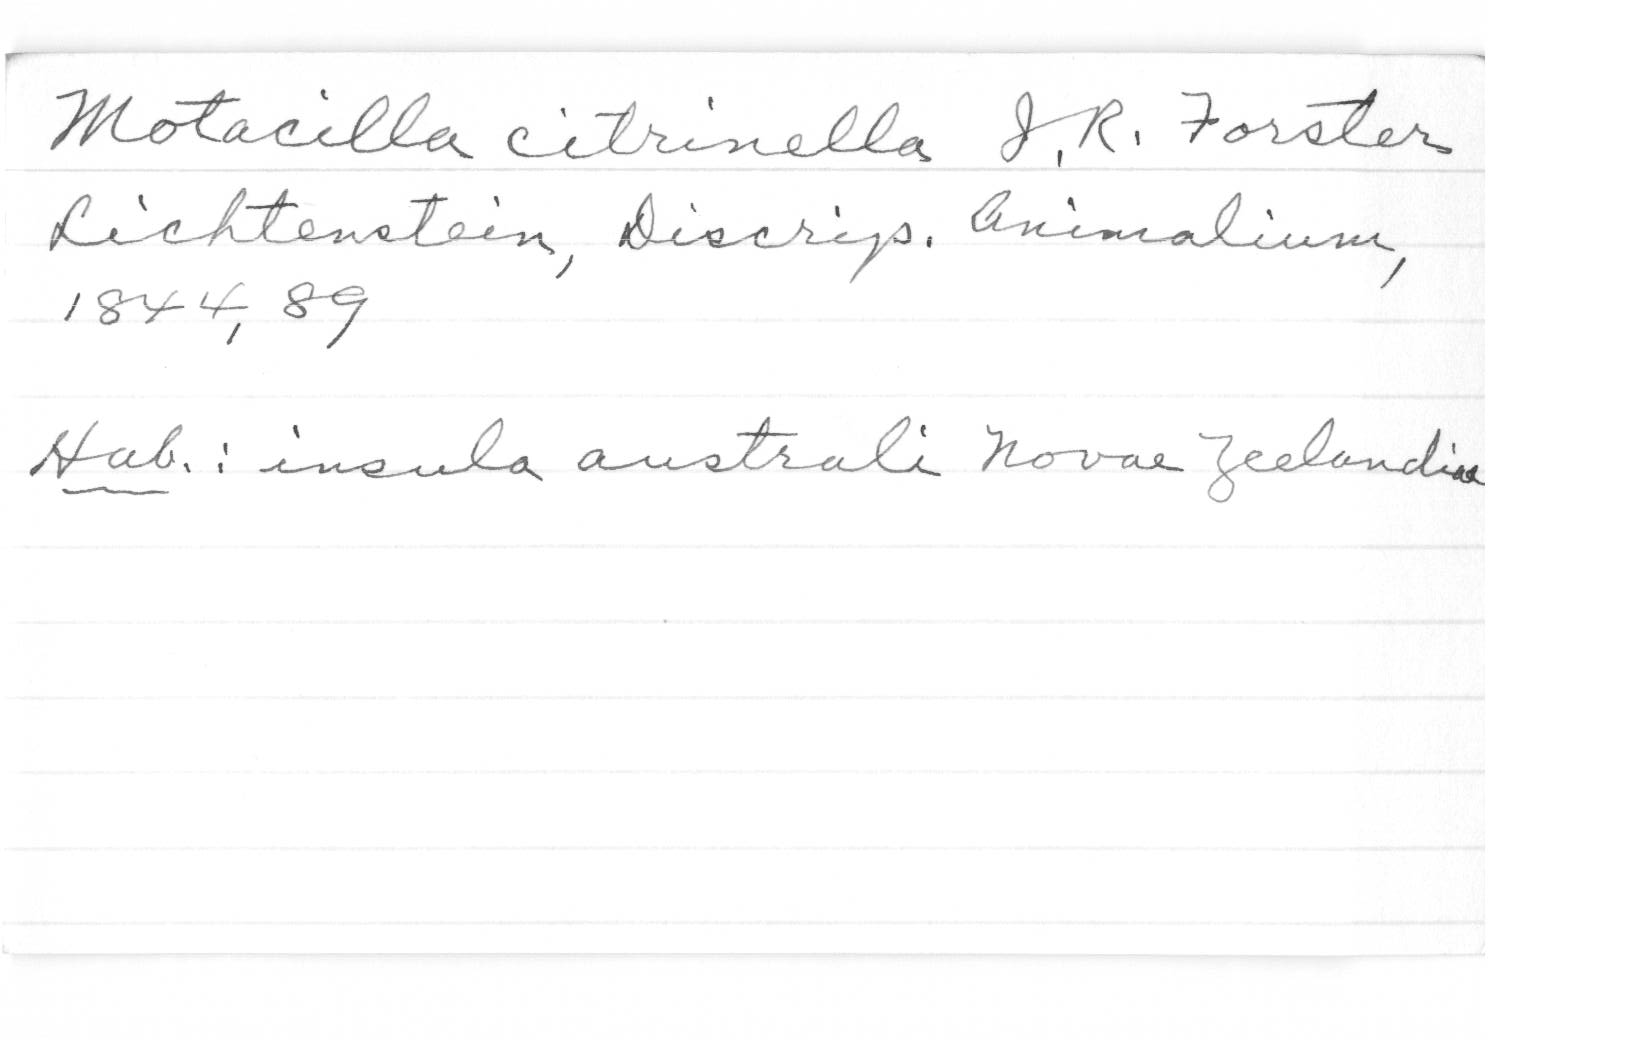 Motacilla citrinella J. R. Forster
Lichtenstein, Discrip. Animalium,
1844, 89
Hab.: insula australi Novae Zeelandiae